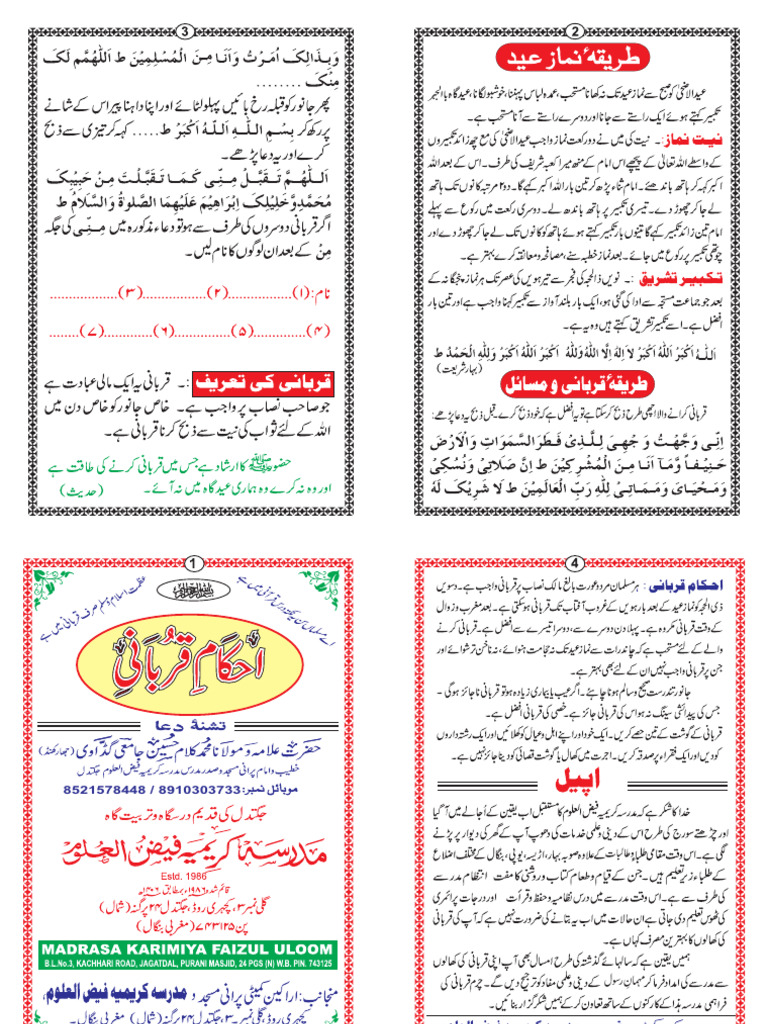 1
اے مسلماں سن یہ نکتہ درس قرآنی میں ہے
عظمت اسلام و مسلم صرف قربانی میں ہے
احکامِ قربانی
تشنۂ دعا
حضرت علامہ و مولانا محمد کلام حسین جامعی گڈاوی (جھارکھنڈ)
خطیب و امام پرانی مسجد و صدر مدرس مدرسہ کریمیہ فیض العلوم جگتدل
موبائل نمبر: 8910303733 / 8521578448
جگتدل کی قدیم درسگاہ و تربیت گاہ
مدرسہ کریمیہ فیض العلوم
Estd. 1986
قائم شدہ ۱۹۸۶ء بمطابق ۱۴۰۶ھ
گلی نمبر ۳، کچہری روڈ، جگتدل ۲۴ پرگنہ (شمال)
پن ۷۴۳۱۲۵ (مغربی بنگال)
MADRASA KARIMIYA FAIZUL ULOOM
B.L.No.3, KACHHARI ROAD, JAGATDAL, PURANI MASJID, 24 PGS (N) W.B. PIN. 743125
منجانب: اراکین کمیٹی پرانی مسجد و مدرسہ کریمیہ فیض العلوم،
گلی نمبر ۳، کچہری روڈ، جگتدل ۲۴ پرگنہ (شمال) مغربی بنگال۔
2
طریقۂ نماز عید
عیدالاضحیٰ کو صبح سے نماز عید تک نہ کھانا مستحب، عمدہ لباس پہننا، خوشبو لگانا، عیدگاہ بالجہر
تکبیر کہتے ہوئے ایک راستے سے جانا اور دوسرے راستے سے آنا مستحب ہے۔
نیت نماز:۔ نیت کی میں نے دو رکعت نماز واجب عیدالاضحیٰ کی مع چھ زائد تکبیروں
کے واسطے اللہ تعالیٰ کے پیچھے اس امام کے منھ میرا کعبہ شریف کی طرف۔ اس کے بعد اللہ
اکبر کہہ کر ہاتھ باندھ لئے۔ امام ثناء پڑھ کر تین بار اللہ اکبر کہے گا۔ ۲ مرتبہ کانوں تک ہاتھ
لے جا کر چھوڑ دے۔ تیسری تکبیر پر ہاتھ باندھ لے۔ دوسری رکعت میں رکوع سے پہلے
امام تین زائد تکبیر کہے گا تینوں بار تکبیر کہتے ہوئے ہاتھ کو کانوں تک لے جا کر چھوڑ دے اور
چوتھی تکبیر پر رکوع میں جائے۔ بعد نماز خطبہ سنے، مصافحہ و معانقہ کرے بہتر ہے۔
تکبیر تشریق:۔ نویں ذالحجہ کی فجر سے تیرہویں کی عصر تک ہر نماز پنجگانہ کے
بعد جو جماعت مستحبہ سے ادا کی گئی ہو، ایک بار بلند آواز سے تکبیر کہنا واجب ہے اور تین بار
افضل ہے۔ اسے تکبیر تشریق کہتے ہیں وہ یہ ہے۔
اَللہُ اَکْبَرُ اَللہُ اَکْبَرُ لَا اِلٰهَ اِلَّا اللهُ وَاللهُ اَکْبَرُ اَللہُ اَکْبَرُ وَلِلّٰهِ الْحَمْدُ ط
(بہار شریعت)
طریقۂ قربانی و مسائل
قربانی کرانے والا اچھی طرح ذبح کر سکتا ہے تو یہ افضل ہے کہ خود ذبح کرے۔ قبل ذبح یہ دعا پڑھے:
اِنِّی وَجَّهْتُ وَجْهِیَ لِلَّذِیْ فَطَرَ السَّمٰوَاتِ وَالْاَرْضَ
حَنِیْفاً وَّمَا اَنَا مِنَ الْمُشْرِکِیْنَ ط اِنَّ صَلَاتِیْ وَنُسُکِیْ
وَمَحْیَایَ وَمَمَاتِیْ لِلّٰهِ رَبِّ الْعَالَمِیْنَ ط لَا شَرِیْکَ لَهٗ
3
وَبِذَالِکَ اُمِرْتُ وَاَنَا مِنَ الْمُسْلِمِیْنَ ط اَللّٰهُمَّ لَکَ
مِنْکَ ........
پھر جانور کو قبلہ رخ بائیں پہلو لٹائے اور اپنا داہنا پیر اس کے شانے
پر رکھ کر بِسْمِ اللهِ اَللهُ اَکْبَرُ ط ..... کہہ کر تیزی سے ذبح
کرے اور یہ دعا پڑھے۔
اَللّٰهُمَّ تَقَبَّلْ مِنِّی کَمَا تَقَبَّلْتَ مِنْ حَبِیْبِکَ
مُحَمَّدٍ وَّخَلِیْلِکَ اِبْرَاهِیْمَ عَلَیْهِمَا الصَّلٰوةُ وَالسَّلَامُ ط
اگر قربانی دوسروں کی طرف سے ہو تو دعاء مذکورہ میں مِنِّی کی جگہ
مِنْ کے بعد ان لوگوں کا نام لیں۔
نام: (۱).................(۲).................(۳).................
(۴).............(۵).............(۶).............(۷)........
قربانی کی تعریف:۔ قربانی یہ ایک مالی عبادت ہے
جو صاحب نصاب پر واجب ہے۔ خاص جانور کو خاص دن میں
اللہ کے لئے ثواب کی نیت سے ذبح کرنا قربانی ہے۔
حضور ﷺ کا ارشاد ہے جس میں قربانی کرنے کی طاقت ہے
اور وہ نہ کرے وہ ہماری عیدگاہ میں نہ آئے۔ (حدیث)
4
احکام قربانی: ہر مسلمان مرد و عورت بالغ مالک نصاب پر قربانی واجب ہے۔ دسویں
ذی الحجہ کو نماز عید کے بعد بارہویں کے غروب آفتاب تک قربانی ہو سکتی ہے۔ بعد مغرب و زوال
کے وقت قربانی مکروہ ہے۔ پہلا دن دوسرے سے، دوسرا تیسرے سے افضل ہے۔ قربانی کرنے
والے کے لئے مستحب ہے کہ چاند رات سے نماز عید تک نہ حجامت ہنوائے، نہ ناخن ترشوائے اور
جن پر قربانی واجب نہیں ان کے لئے بھی بہتر ہے۔
جانور تندرست صحیح و سالم ہونا چاہئے۔ اگر عیب یا بیماری زیادہ ہو تو قربانی ناجائز ہوگی۔
جس کی پیدائشی سینگ نہ ہو اس کی قربانی جائز ہے۔ خصی کی قربانی افضل ہے۔
قربانی کے گوشت کے تین حصے کریں۔ ایک خود اور اپنے اہل و عیال کو کھلائیں ایک رشتہ داروں
کو دیں اور ایک فقراء پر صدقہ کریں۔ اجرت میں کھال یا گوشت قصائی کو دینا جائز نہیں ہے۔
اپیل
خدا کا شکر ہے کہ مدرسہ کریمیہ فیض العلوم کا مستقبل اب یقین کے اُجالے میں آ گیا
اور چڑھتے سورج کی طرح اس کے دینی و علمی خدمات کی دھوپ آپ کے گھر کی دیوار پر پڑنے
لگی ہے۔ اس وقت مقامی طلباء و طالبات کے علاوہ صوبہ بہار، اڑیسہ، یوپی، بنگال کے مختلف اضلاع
کے طلباء زیر تعلیم ہیں۔ جن کے قیام و طعام کتاب و روشنی کا مفت انتظام مدرسے
کی طرف سے ہے۔ اس وقت مدرس میں درس نظامیہ و حفظ و قرأت اور درجات پرائمری
کی ٹھوس تعلیم دی جاتی ہے ان حالات میں اب یہ بتانے کی ضرورت نہیں ہے کہ آپ کی قربانی
کی کھالوں کا بہترین مصرف کہاں ہے۔
ہمیں یقین ہے کہ سالہائے گذشتہ کی طرح امسال بھی آپ اپنی قربانی کی کھالوں
سے مدرسے کی امداد فرما کر مہمان رسول کے دینی و علمی مفاد کو ترجیح دیں گے۔ چرم قربانی کی
فراہمی مدرسہ ہذا کے کارکنوں کے ساتھ تعاون کر کے ہمیں شکر گزار بنائیں۔